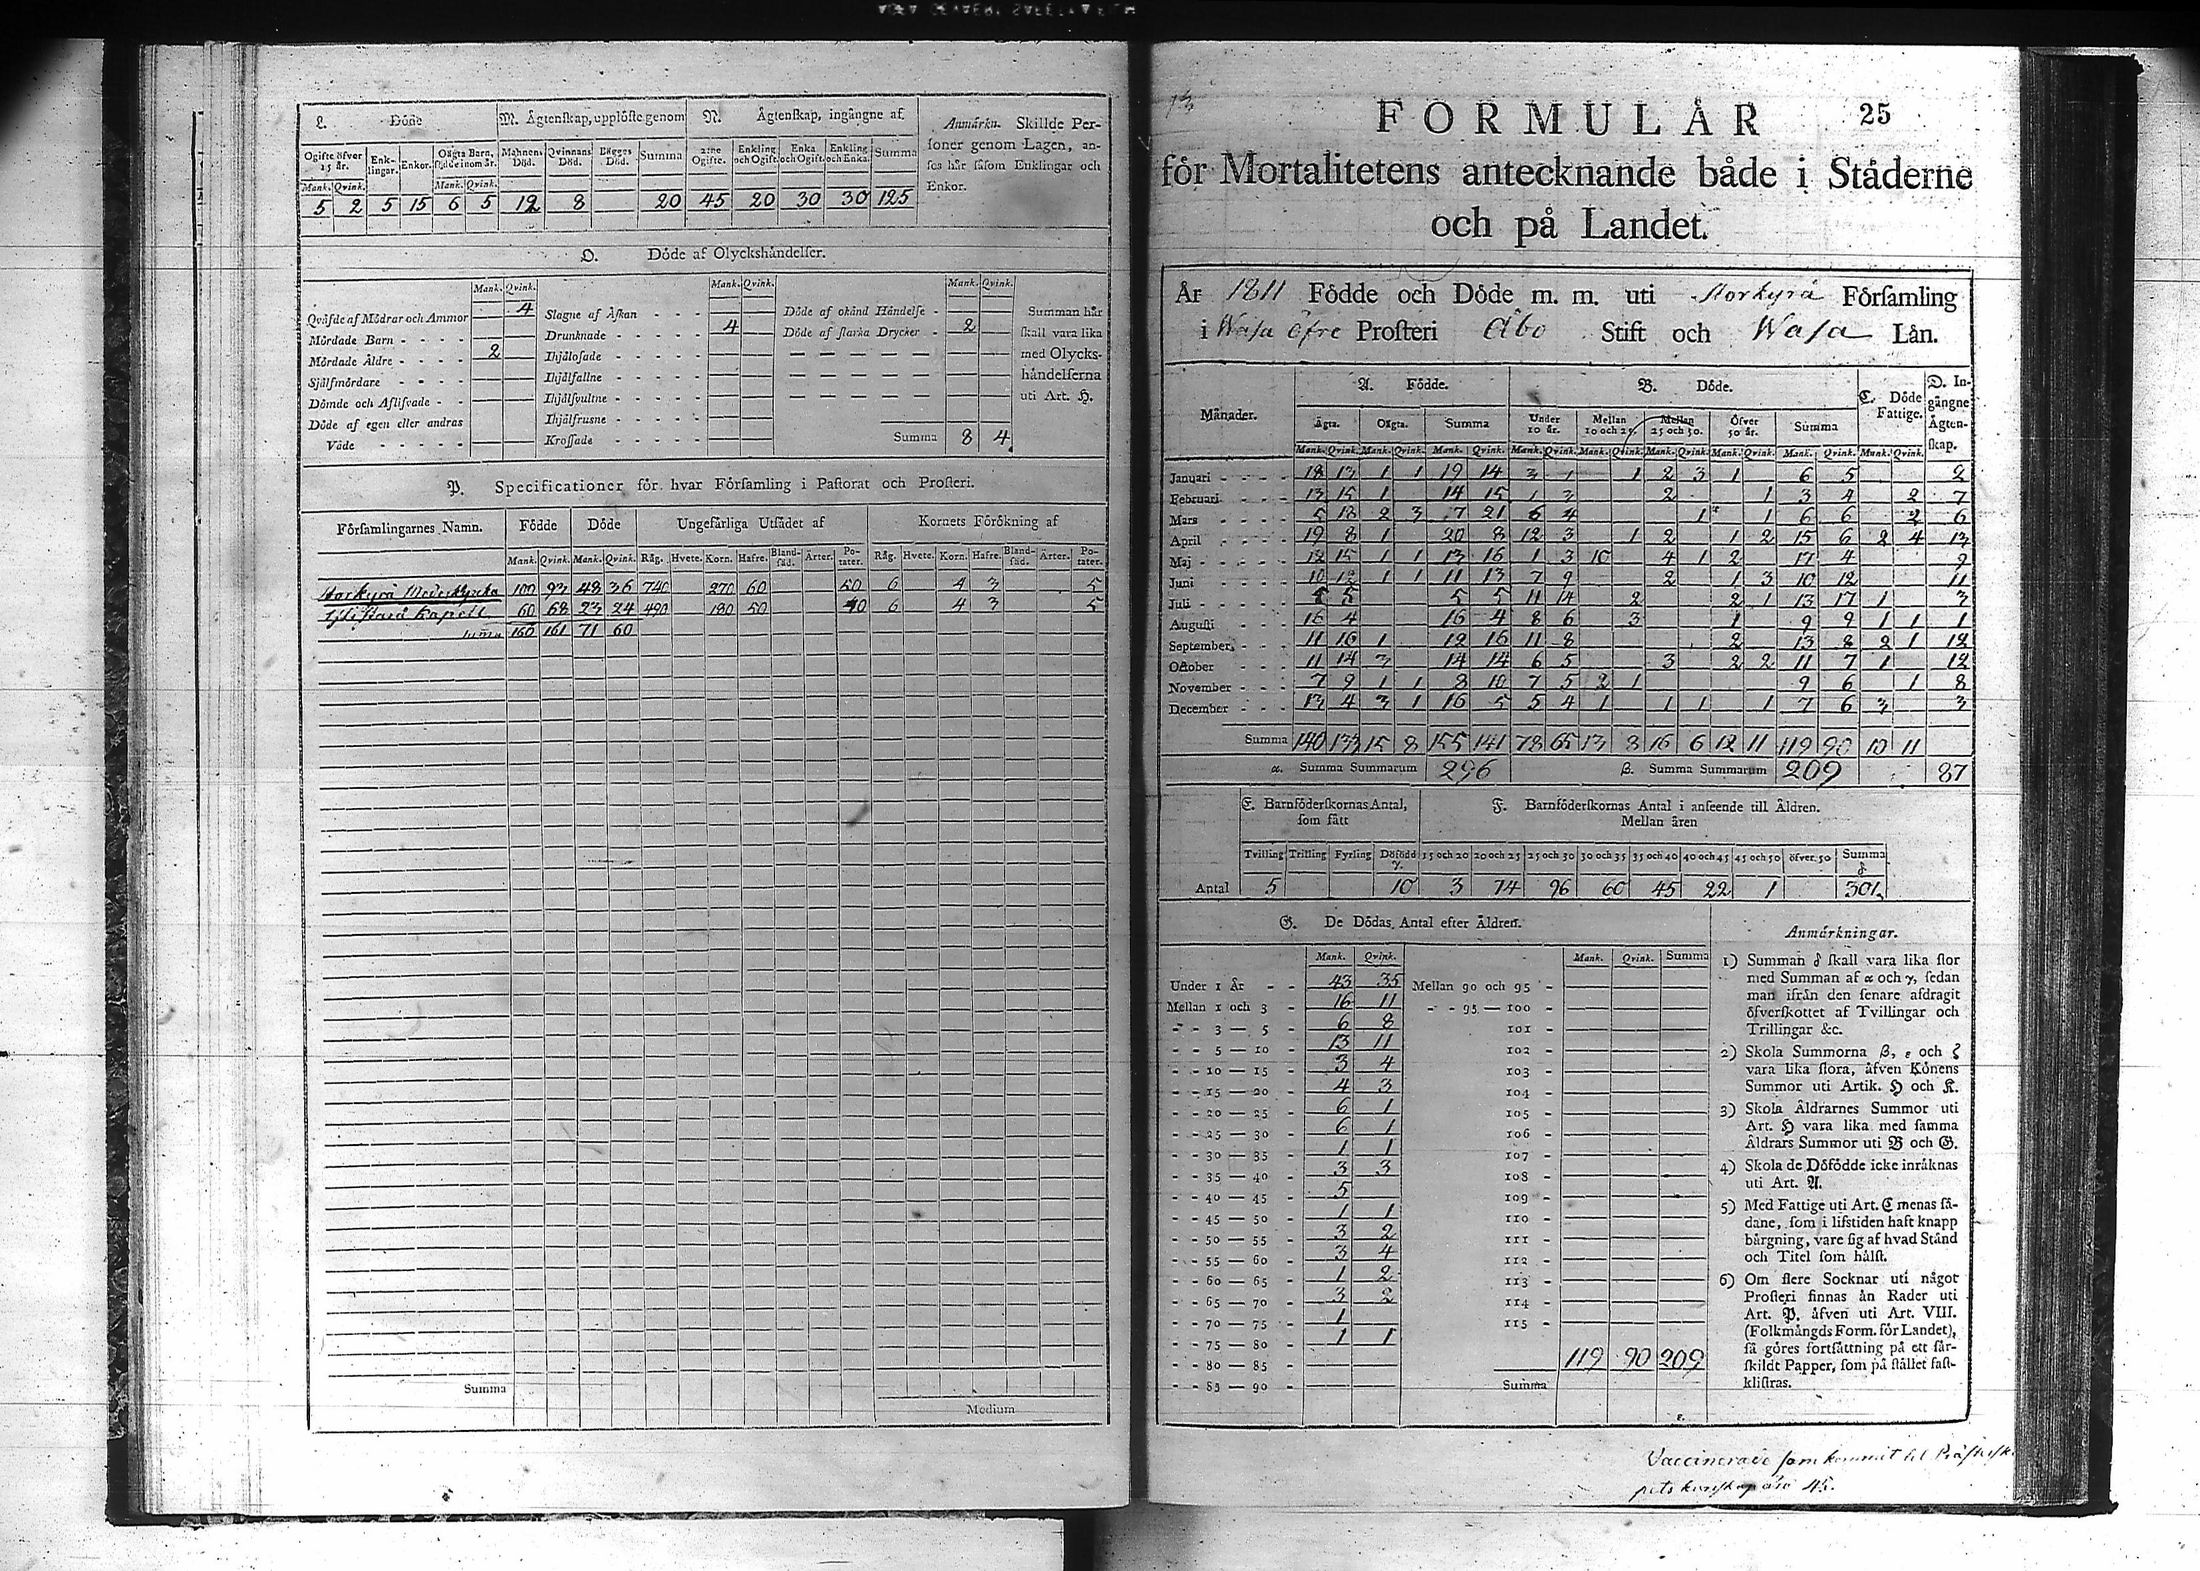 L. Döde
M. Ägtenskap, upplöste genom
N. Ägtenskap, ingångne af
Anmärkn. Skillde Personer genom Lagen, anses här såsom Enklingar och Enkor.
Ogifte öfver 15 år. Enklingar. Enkor. Oägta Barn, födde inom år. Mannens Död. Qvinnans Död. Bägges Död. Summa 2:ne Ogifte. Enkling och Ogift. Enka och Ogift. Enkling och Enka. Summa
Mank. Qvink. Mank. Qvink.
5 2 5 15 6 5 12 8 20 45 20 30 30 125
O. Döde af Olyckshändelser.
Mank. Qvink. Mank. Qvink. Mank. Qvink.
Qväfde af Mödrar och Ammor 4 Slagne af Åskan Döde af okänd Händelse
Mördade Barn Drunknade 4 Döde af starka Drycker 2
Mördade Äldre 2 Ihjälosade
Själfmördare Ihjälfallne
Dömde och Aflifvade Ihjälsvultne
Döde af egen eller andras Våde Ihjälfrusne
Krossade Summa 8 4
Summan här skall vara lika med Olyckshändelserna uti Art. H.
P. Specificationer för hvar Församling i Pastorat och Prosteri.
Församlingarnes Namn. Födde Döde Ungefärliga Utsädet af Kornets Förökning af
Mank. Qvink. Mank. Qvink. Råg. Hvete. Korn. Hafre. Blandsäd. Ärter. Potater. Råg. Hvete. Korn. Hafre. Blandsäd. Ärter. Potater.
Storkyrå Moderkyrka 100 93 48 36 740 270 60 50 6 4 3 5
Kapell 60 68 23 24 490 180 50 40 6 4 3 5
Summa 160 161 71 60
Summa
Medium
13
25
FORMULÄR
för Mortalitetens antecknande både i Städerne
och på Landet.
År 1811 Födde och Döde m. m. uti Storkyrå Församling
i Wasa öfre Prosteri Åbo Stift och Wasa Län.
Månader. A. Födde. B. Döde. C. Döde Fattige. D. Ingångne Ägtenskap.
Ägta. Oägta. Summa Under 10 år. Mellan 10 och 25. Mellan 25 och 50. Öfver 50 år. Summa
Mank. Qvink. Mank. Qvink. Mank. Qvink. Mank. Qvink. Mank. Qvink. Mank. Qvink. Mank. Qvink. Mank. Qvink. Mank. Qvink.
Januari 18 13 1 1 19 14 3 1 1 2 3 1 6 5 2
Februari 13 15 1 14 15 1 3 2 1 3 4 2 7
Mars 5 18 2 3 7 21 6 4 1 1 6 6 2 6
April 19 8 1 20 8 12 3 1 2 1 2 15 6 2 4 13
Maj 12 15 1 1 13 16 1 3 10 4 1 2 17 4 9
Juni 10 12 1 1 11 13 7 9 2 1 3 10 12 11
Juli 5 5 5 5 11 14 2 2 1 13 17 1 3
Augusti 16 4 16 4 8 6 3 1 9 9 1 1 1
September 11 16 1 12 16 11 8 2 13 8 2 1 12
October 11 14 3 14 14 6 5 3 2 2 11 7 1 12
November 7 9 1 1 8 10 7 5 2 1 9 6 1 8
December 13 4 3 1 16 5 5 4 1 1 1 1 7 6 3 3
Summa 140 133 15 8 155 141 78 65 13 8 16 6 12 11 119 90 10 11
α. Summa Summarum 296 β. Summa Summarum 209 87
E. Barnföderskornas Antal, som fått
F. Barnföderskornas Antal i anseende till Åldren.
Mellan åren
Tvilling Trilling Fyrling Döfödd γ. 15 och 20 20 och 25 25 och 30 30 och 35 35 och 40 40 och 45 45 och 50 öfver 50 Summa δ
Antal 5 10 3 74 96 60 45 22 1 301
G. De Dödas Antal efter Åldren.
Mank. Qvink. Mank. Qvink. Summa
Under 1 År 43 35 Mellan 90 och 95
Mellan 1 och 3 16 11 95 — 100
3 — 5 6 8 101
5 — 10 13 11 102
10 — 15 3 4 103
15 — 20 4 3 104
20 — 25 6 1 105
25 — 30 6 1 106
30 — 35 1 1 107
35 — 40 3 3 108
40 — 45 5 109
45 — 50 1 1 110
50 — 55 3 2 111
55 — 60 3 4 112
60 — 65 1 2 113
65 — 70 3 2 114
70 — 75 1 115
75 — 80 1 1
80 — 85 119 90 209
85 — 90 Summa
ε.
Anmärkningar.
1) Summan δ skall vara lika stor
med Summan af α och γ, sedan
man ifrån den senare afdragit
öfverskottet af Tvillingar och
Trillingar &c.
2) Skola Summorna β, ε och ζ
vara lika stora, äfven Könens
Summor uti Artik. H och K.
3) Skola Åldrarnes Summor uti
Art. H vara lika med samma
Åldrars Summor uti B och G.
4) Skola de Döfödde icke inräknas
uti Art. A.
5) Med Fattige uti Art. C menas sådane,
som i lifstiden haft knapp
bärgning, vare sig af hvad Stånd
och Titel som hälst.
6) Om flere Socknar uti något
Prosteri finnas än Rader uti
Art. P. äfven uti Art. VIII.
(Folkmängds Form. för Landet),
så göres fortsättning på ett särskildt
Papper, som på stället fastklistras.
Vaccinerade som kommit til
kunskap äro 45.